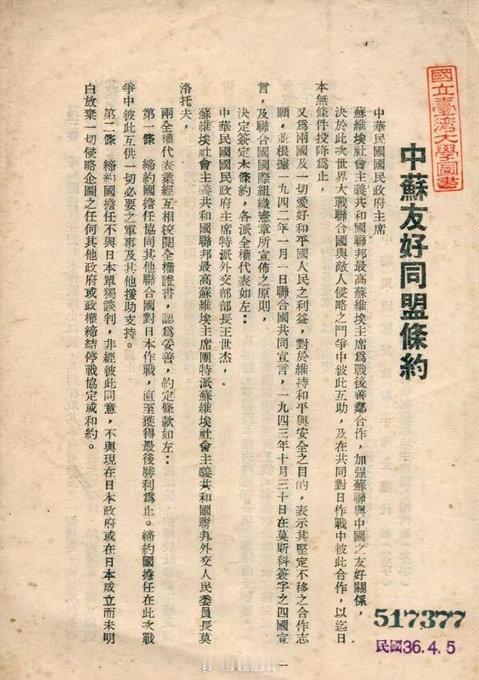 中蘇友好同盟條約
中華民國國民政府主席
蘇維埃社會主義共和國聯邦最高蘇維埃主席爲戰後善鄰合作，加强蘇聯與中國之友好關係，
決於此次世界大戰聯合國與敵人侵略之鬥爭中彼此互助，及在共同對日作戰中彼此合作，以迄日
本無條件投降爲止，
又爲兩國及一切愛好和平國人民之利益，對於維持和平與安全之目的，表示其堅定不移之合作志
願，並根據一九四二年一月一日聯合國共同宣言，一九四三年十月三十日在莫斯科簽字之四國宣
言，及聯合國國際組織憲章所宣佈之原則，
決定簽定本條約，各派全權代表如左：
中華民國國民政府主席特派外交部部長王世杰，
蘇維埃社會主義共和國聯邦最高蘇維埃主席團特派蘇維埃社會主義共和國聯邦外交人民委員長莫
洛托夫，
兩全權代表業經互相校閱全權證書，認爲妥善，約定條款如左：
第一條　締約國擔任協同其他聯合國對日本作戰，直至獲得最後勝利爲止。締約國擔任在此次戰
爭中彼此互供一切必要之軍事及其他援助支持。
第二條　締約國擔任不與日本單獨談判，非經彼此同意，不與現在日本政府或在日本成立而未明
白放棄一切侵略企圖之任何其他政府或政權締結停戰協定或和約。
一
國立臺灣大學圖書
517377
民國36.4.5